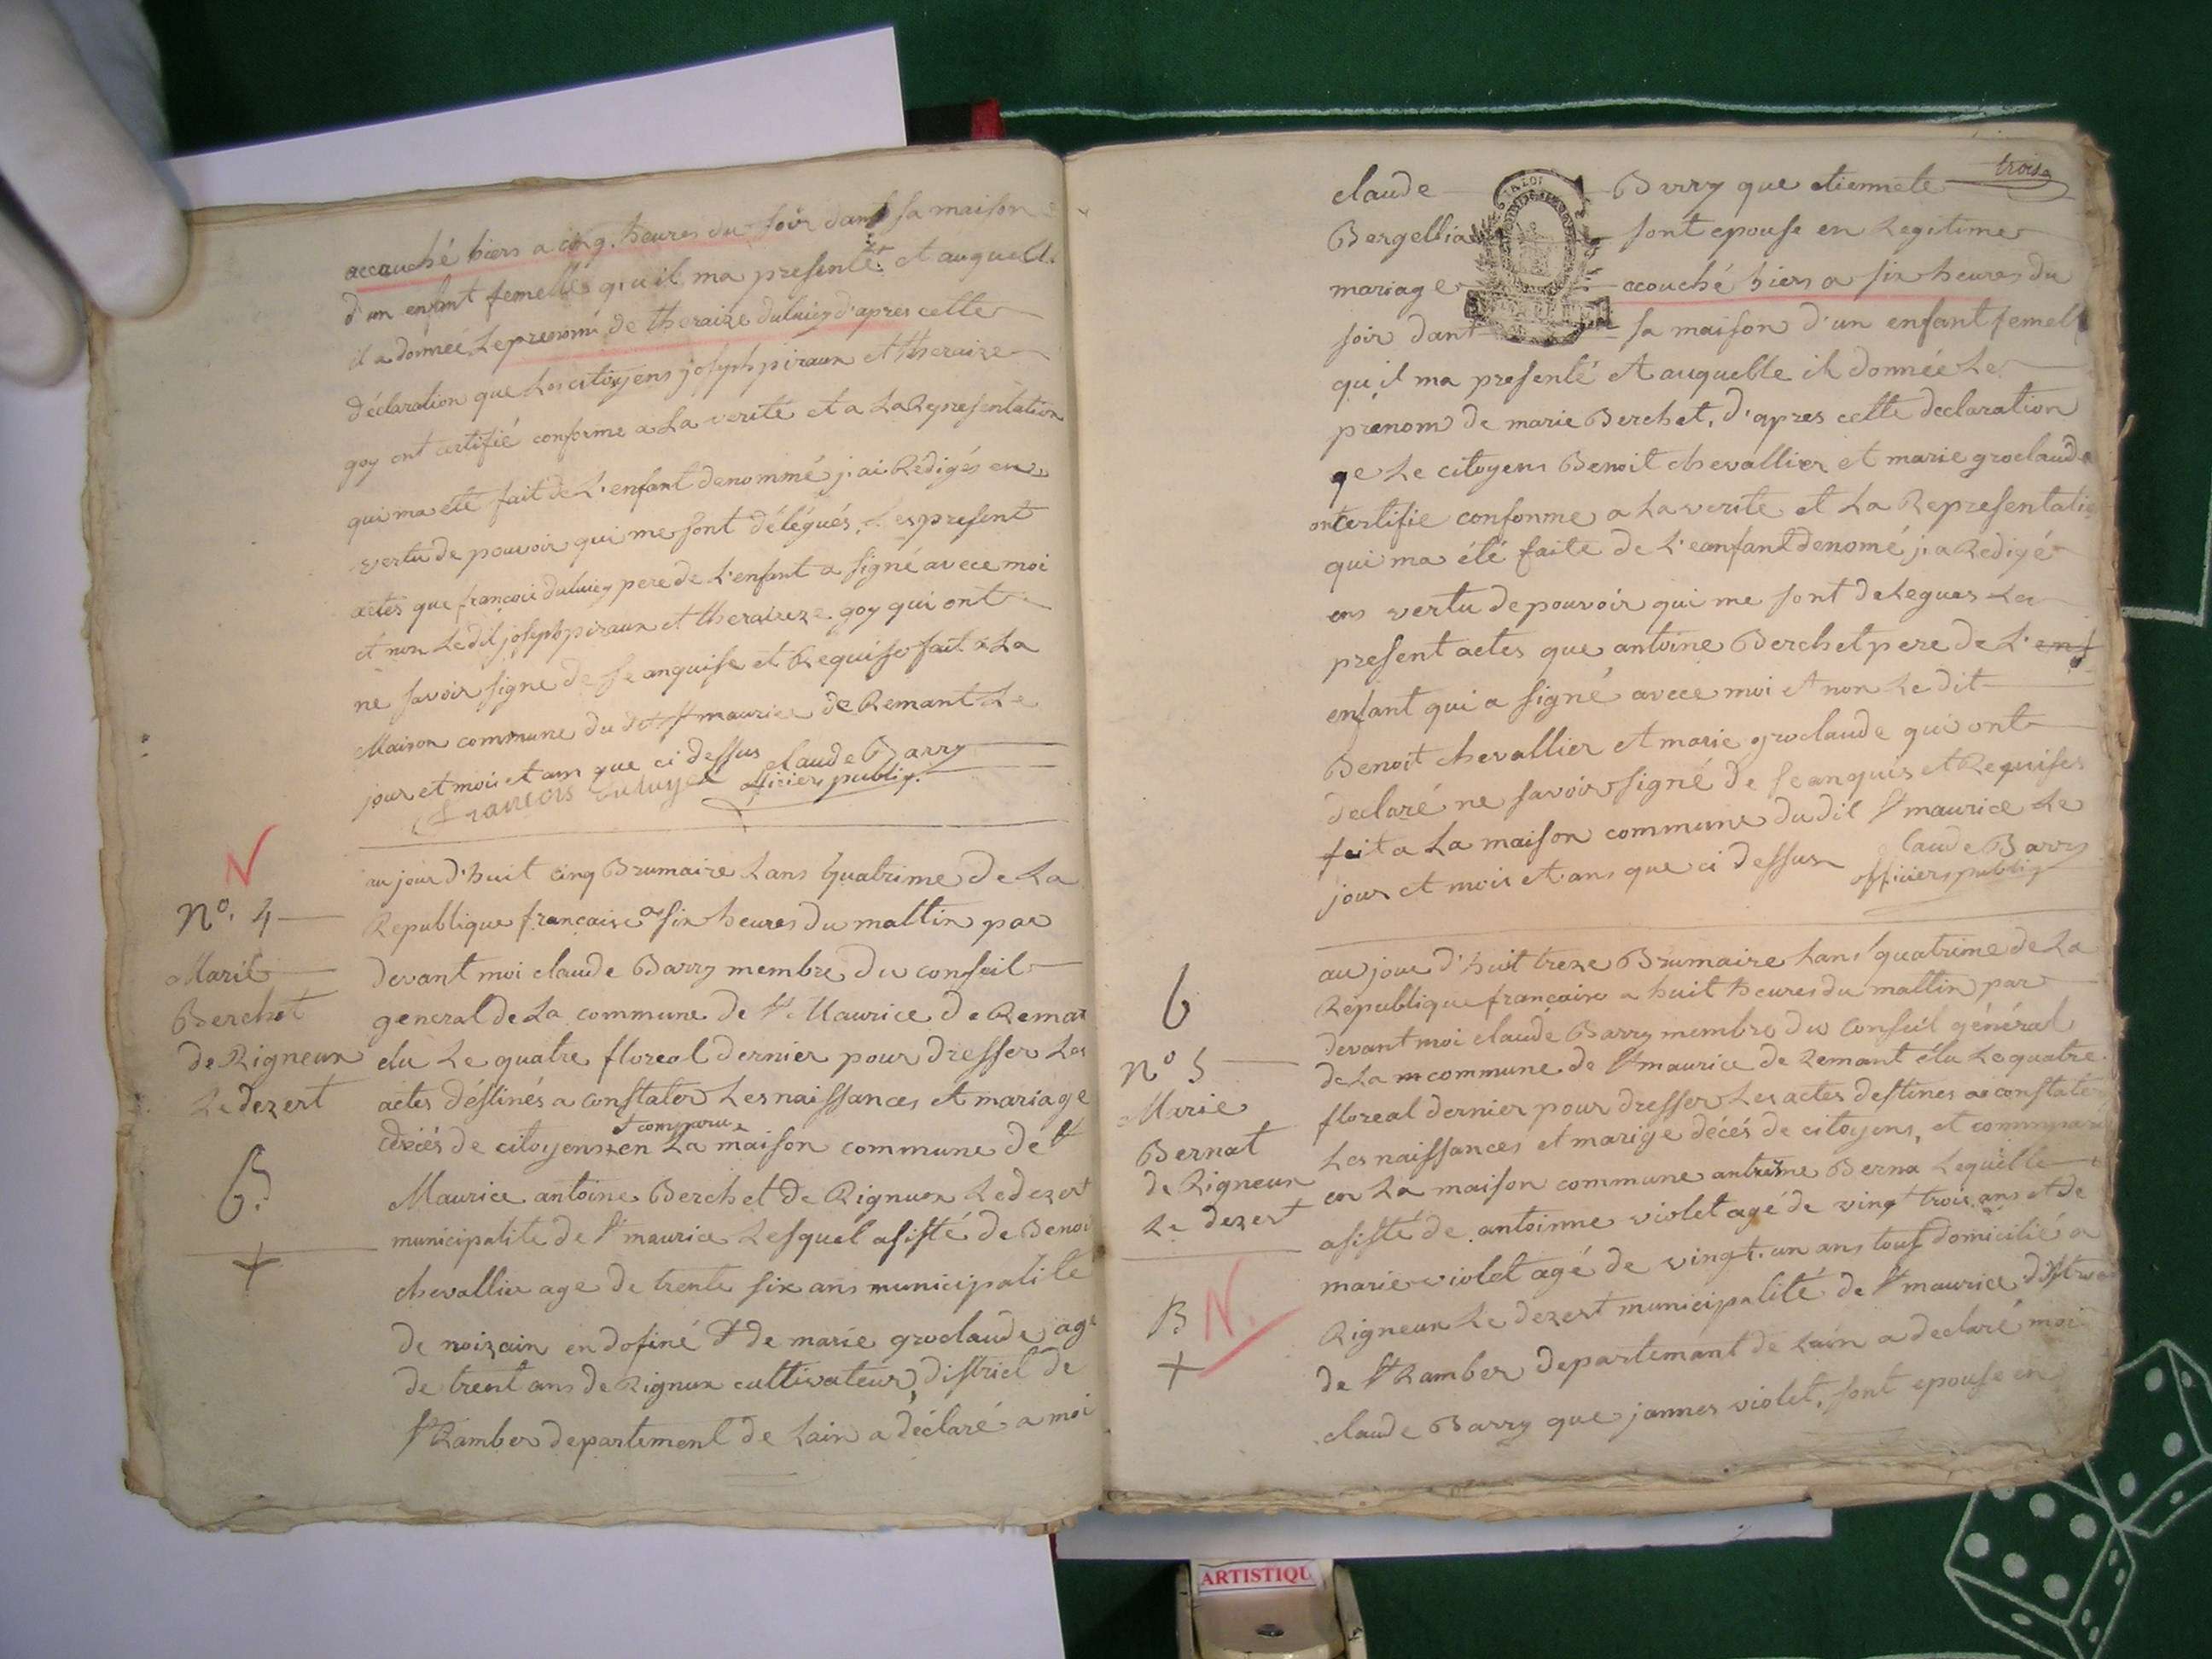 accouché hiers a cinq heures du soir dant sa maison
d'un enfant femelle qu'il ma presenté et auquelle
il a donnée le prenomi de theraize duluiey d'apres cette
déclaration que les citoyens joseph piraux et theraize
goy ont certifié conforme a la verité et a la Representation
qui ma été fait de l'enfant denommé j'ai Rédigés en
vertu de pouvoir qui me sont délégués, les present
actes que françois duluiey pere de l'enfant a signé avece moi
et non le dit joseph piraux et theraize goy qui ont
ne savoir signe de se anquise et Requise fait a la
Maison commune du dit st maurice de Remant le
jour et mois et ans que ci dessus claude Barry
francois officiers publiq.
N
N°. 4
Marie
Berchet
de Rigneux
le dezert
6.
+
au jour d'huit cinq Brumaire lans quatrime de la
Republique francaise a six heures du mattin par
devant moi claude Barry membre du conseil
general de la commune de st Maurice de Remar
elu le quatre floreal dernier pour dresser les
actes déstinés a constater les naissances et mariage
décés de citoyens et comparu en la maison commune de st
Maurice antoine Berchet de Rignuex le dezert
municipalite de st maurice lesquel asisté de Benoi
chevallier age de trente six ans municipalite
de noizain en dofiné et de marie groclaude age
de trent ans de Rignux cultivateur, district de
st Ramber departement de lain a déclaré a moi
trois
claude Barry que etiennete
Bergellia sont epouse en legitime
mariage acouché hiers a six heures du
soir dant sa maison d'un enfant femel
qu'il ma presenté et auquelle il donnée le
prenom de marie Berchet, d'apres cette declaration
qe le citoyens Benoit chevallier et marie groclaude
ont certifie confonme a la verite et la Representatio
qui ma été faite de l'eanfant denomé j.a Rédigé
en vertu de pouvoir qui me sont delegues les
present actes que antoine Berchet pere de l'enf
enfant qui a signé avece moi et non le dit
Benoit chevallier et marie groclaude qui ont
declaré ne savoir signé de se anquis et Requises
fait a la maison commune du dit st maurice le
jour et mois et ans que ci dessus claude Barry
officiers publiq
6
N° 5
Marie
Bernat
de Rigneux
le dezert
B N.
+
au jour d'huit treze Brumaire lans quatrime de la
République francaise a huit heures du mattin par
devant moi claude Barry membre du Conseil général
de la commune de st maurice de Remant élu le quatre
floreal dernier pour dresser les actes destines a constater
les naissances et marige décés de citoyens, et comparu
en la maison commune antreme Berna lequelle
asisté de antoinne violet agé de vingt trois ans et de
marie violet agé de vingt. un ans tous domicilié a
Rigneux le dezert municipalité de st maurice distric
de st Ramber departemant de lain a declaré moi
claude Barry que jannes violet, sont epouse en
ARTISTIQU